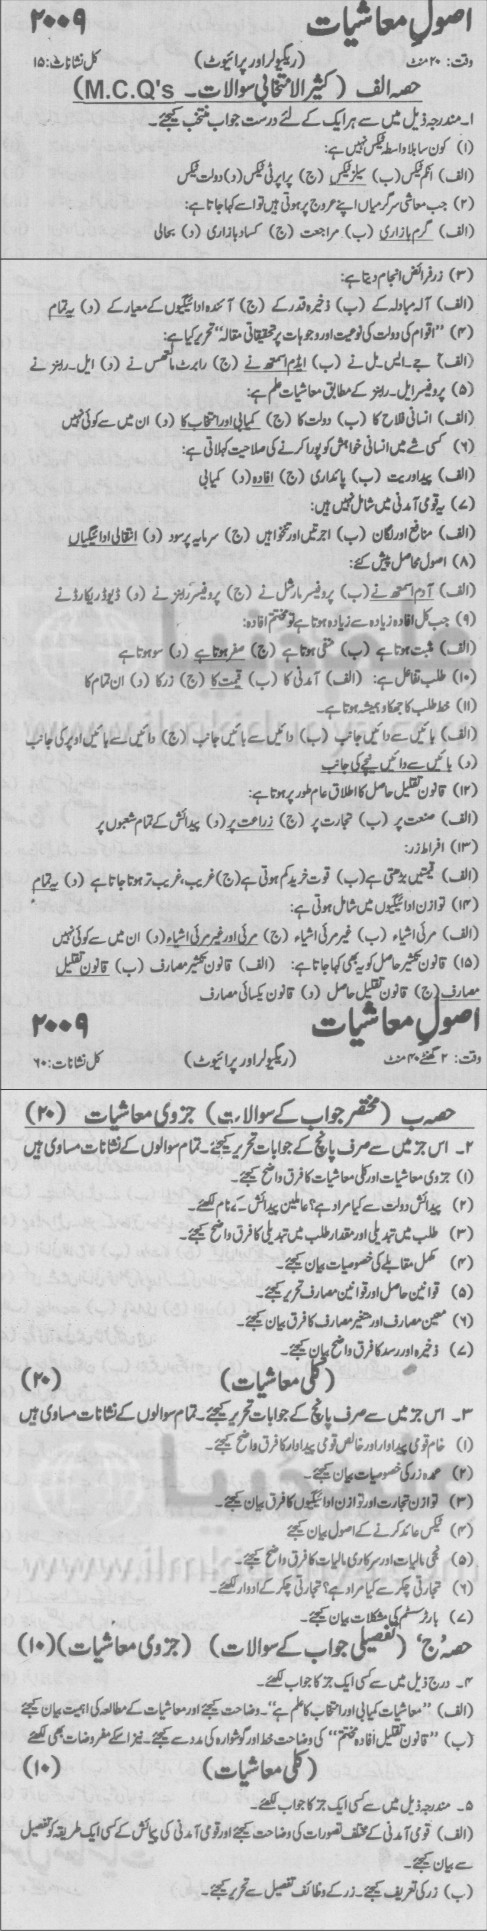 اصولِ معاشیات ۲۰۰۹
وقت: ۲۰ منٹ (ریگولر اور پرائیوٹ) کل نشانات: ۱۵
حصہ الف (کثیر الانتخابی سوالات۔ M.C.Q's)
۱۔ مندرجہ ذیل میں سے ہر ایک کے لئے درست جواب منتخب کیجئے۔
(۱) کون سا بلاواسطہ ٹیکس نہیں ہے:
(الف) انکم ٹیکس (ب) سیلز ٹیکس (ج) پراپرٹی ٹیکس (د) دولت ٹیکس
(۲) جب معاشی سرگرمیاں اپنے عروج پر ہوتی ہیں تو اسے کہا جاتا ہے:
(الف) گرم بازاری (ب) مراجعت (ج) کساد بازاری (د) بحالی
(۳) زر فرائض انجام دیتا ہے:
(الف) آلہ مبادلہ کے (ب) ذخیرہ قدر کے (ج) آئندہ ادائیگیوں کے معیار کے (د) یہ تمام
(۴) "اقوام کی دولت کی نوعیت اور وجوہات پر تحقیقاتی مقالہ" تحریر کیا ہے:
(الف) جے۔ایس۔مل نے (ب) ایڈم اسمتھ نے (ج) رابرٹ مالتھس نے (د) ایل۔رابنز نے
(۵) پروفیسر ایل۔رابنز کے مطابق معاشیات علم ہے:
(الف) انسانی فلاح کا (ب) دولت کا (ج) کمیابی اور انتخاب کا (د) ان میں سے کوئی نہیں
(۶) کسی شے میں انسانی خواہش کو پورا کرنے کی صلاحیت کہلاتی ہے:
(الف) پیداوریت (ب) پائداری (ج) افادہ (د) کمیابی
(۷) یہ قومی آمدنی میں شامل نہیں ہیں:
(الف) منافع اور لگان (ب) اجرتیں اور تنخواہیں (ج) سرمایہ پر سود (د) انتقالی ادائیگیاں
(۸) اصول محاصل پیش کئے:
(الف) آدم اسمتھ نے (ب) پروفیسر مارشل نے (ج) پروفیسر رابنز نے (د) ڈیوڈ ریکارڈو نے
(۹) جب کل افادہ زیادہ سے زیادہ ہوتا ہے تو مختتم افادہ:
(الف) مثبت ہوتا ہے (ب) منفی ہوتا ہے (ج) صفر ہوتا ہے (د) سو ہوتا ہے
(۱۰) طلب تفاعل ہے: (الف) آمدنی کا (ب) قیمت کا (ج) زر کا (د) ان تمام کا
(۱۱) خط طلب کا جھکاؤ ہمیشہ ہوتا ہے۔
(الف) بائیں سے دائیں جانب (ب) دائیں سے بائیں جانب (ج) دائیں سے بائیں اوپر کی جانب
(د) بائیں سے دائیں نیچے کی جانب
(۱۲) قانون تقلیل حاصل کا اطلاق عام طور پر ہوتا ہے:
(الف) صنعت پر (ب) تجارت پر (ج) زراعت پر (د) پیدائش کے تمام شعبوں پر
(۱۳) افراط زر:
(الف) قیمتیں بڑھتی ہے (ب) قوت خرید کم ہوتی ہے (ج) غریب، غریب تر ہوتا جاتا ہے (د) یہ تمام
(۱۴) توازن ادائیگیوں میں شامل ہوتی ہے:
(الف) مرئی اشیاء (ب) غیر مرئی اشیاء (ج) مرئی اور غیر مرئی اشیاء (د) ان میں سے کوئی نہیں
(۱۵) قانون تکثیر حاصل کو یہ بھی کہا جاتا ہے: (الف) قانون تکثیر مصارف (ب) قانون تقلیل
مصارف (ج) قانون تقلیل حاصل (د) قانون یکسانی مصارف
اصولِ معاشیات ۲۰۰۹
وقت: ۲ گھنٹے ۴۰ منٹ (ریگولر اور پرائیوٹ) کل نشانات: ۶۰
حصہ ب (مختصر جواب کے سوالات) جزوی معاشیات (۲۰)
۲۔ اس جز میں سے صرف پانچ کے جوابات تحریر کیجئے۔ تمام سوالوں کے نشانات مساوی ہیں
(۱) جزوی معاشیات اور کلی معاشیات کا فرق واضح کیجئے۔
(۲) پیدائش دولت سے کیا مراد ہے؟ عاملین پیدائش کے نام لکھئے۔
(۳) طلب میں تبدیلی اور مقدار طلب میں تبدیلی کا فرق واضح کیجئے۔
(۴) مکمل مقابلے کی خصوصیات بیان کیجئے۔
(۵) قوانین حاصل اور قوانین مصارف تحریر کیجئے۔
(۶) معین مصارف اور متغیر مصارف کا فرق بیان کیجئے۔
(۷) ذخیرہ اور رسد کا فرق واضح بیان کیجئے۔
(کلی معاشیات) (۲۰)
۳۔ اس جز میں سے صرف پانچ کے جوابات تحریر کیجئے۔ تمام سوالوں کے نشانات مساوی ہیں
(۱) خام قومی پیداوار اور خالص قومی پیداوار کا فرق واضح کیجئے۔
(۲) عمدہ زر کی خصوصیات بیان کیجئے۔
(۳) توازن تجارت اور توازن ادائیگیوں کا فرق بیان کیجئے۔
(۴) ٹیکس عائد کرنے کے اصول بیان کیجئے
(۵) نجی مالیات اور سرکاری مالیات کا فرق واضح کیجئے۔
(۶) تجارتی چکر سے کیا مراد ہے؟ تجارتی چکر کے ادوار لکھئے۔
(۷) بارٹر سسٹم کی مشکلات بیان کیجئے۔
حصہ 'ج' (تفصیلی جواب کے سوالات) (جزوی معاشیات) (۱۰)
۴۔ درج ذیل میں سے کسی ایک جز کا جواب لکھئے۔
(الف) "معاشیات کمیابی اور انتخاب کا علم ہے"۔ وضاحت کیجئے اور معاشیات کے مطالعہ کی اہمیت بیان کیجئے
(ب) "قانون تقلیل افادہ مختتم" کی وضاحت خط اور گوشوارہ کی مدد سے کیجئے۔ نیز اسکے مفروضات بھی لکھئے
(کلی معاشیات) (۱۰)
۵۔ مندرجہ ذیل میں سے کسی ایک جز کا جواب لکھئے۔
(الف) قومی آمدنی کے مختلف تصورات کی وضاحت کیجئے اور قومی آمدنی کی پیمائش کے کسی ایک طریقہ کو تفصیل
سے بیان کیجئے۔
(ب) زر کی تعریف کیجئے۔ زر کے وظائف تفصیل سے تحریر کیجئے۔